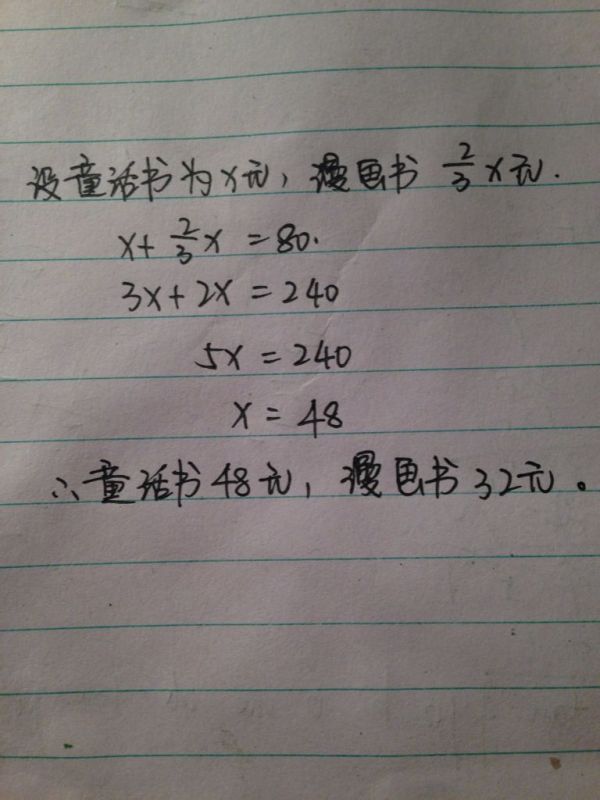 设童话书为x元，漫画书 2/3 x元.
x+ 2/3 x = 80.
3x+2x = 240
5x = 240
x = 48
∴童话书48元，漫画书32元。